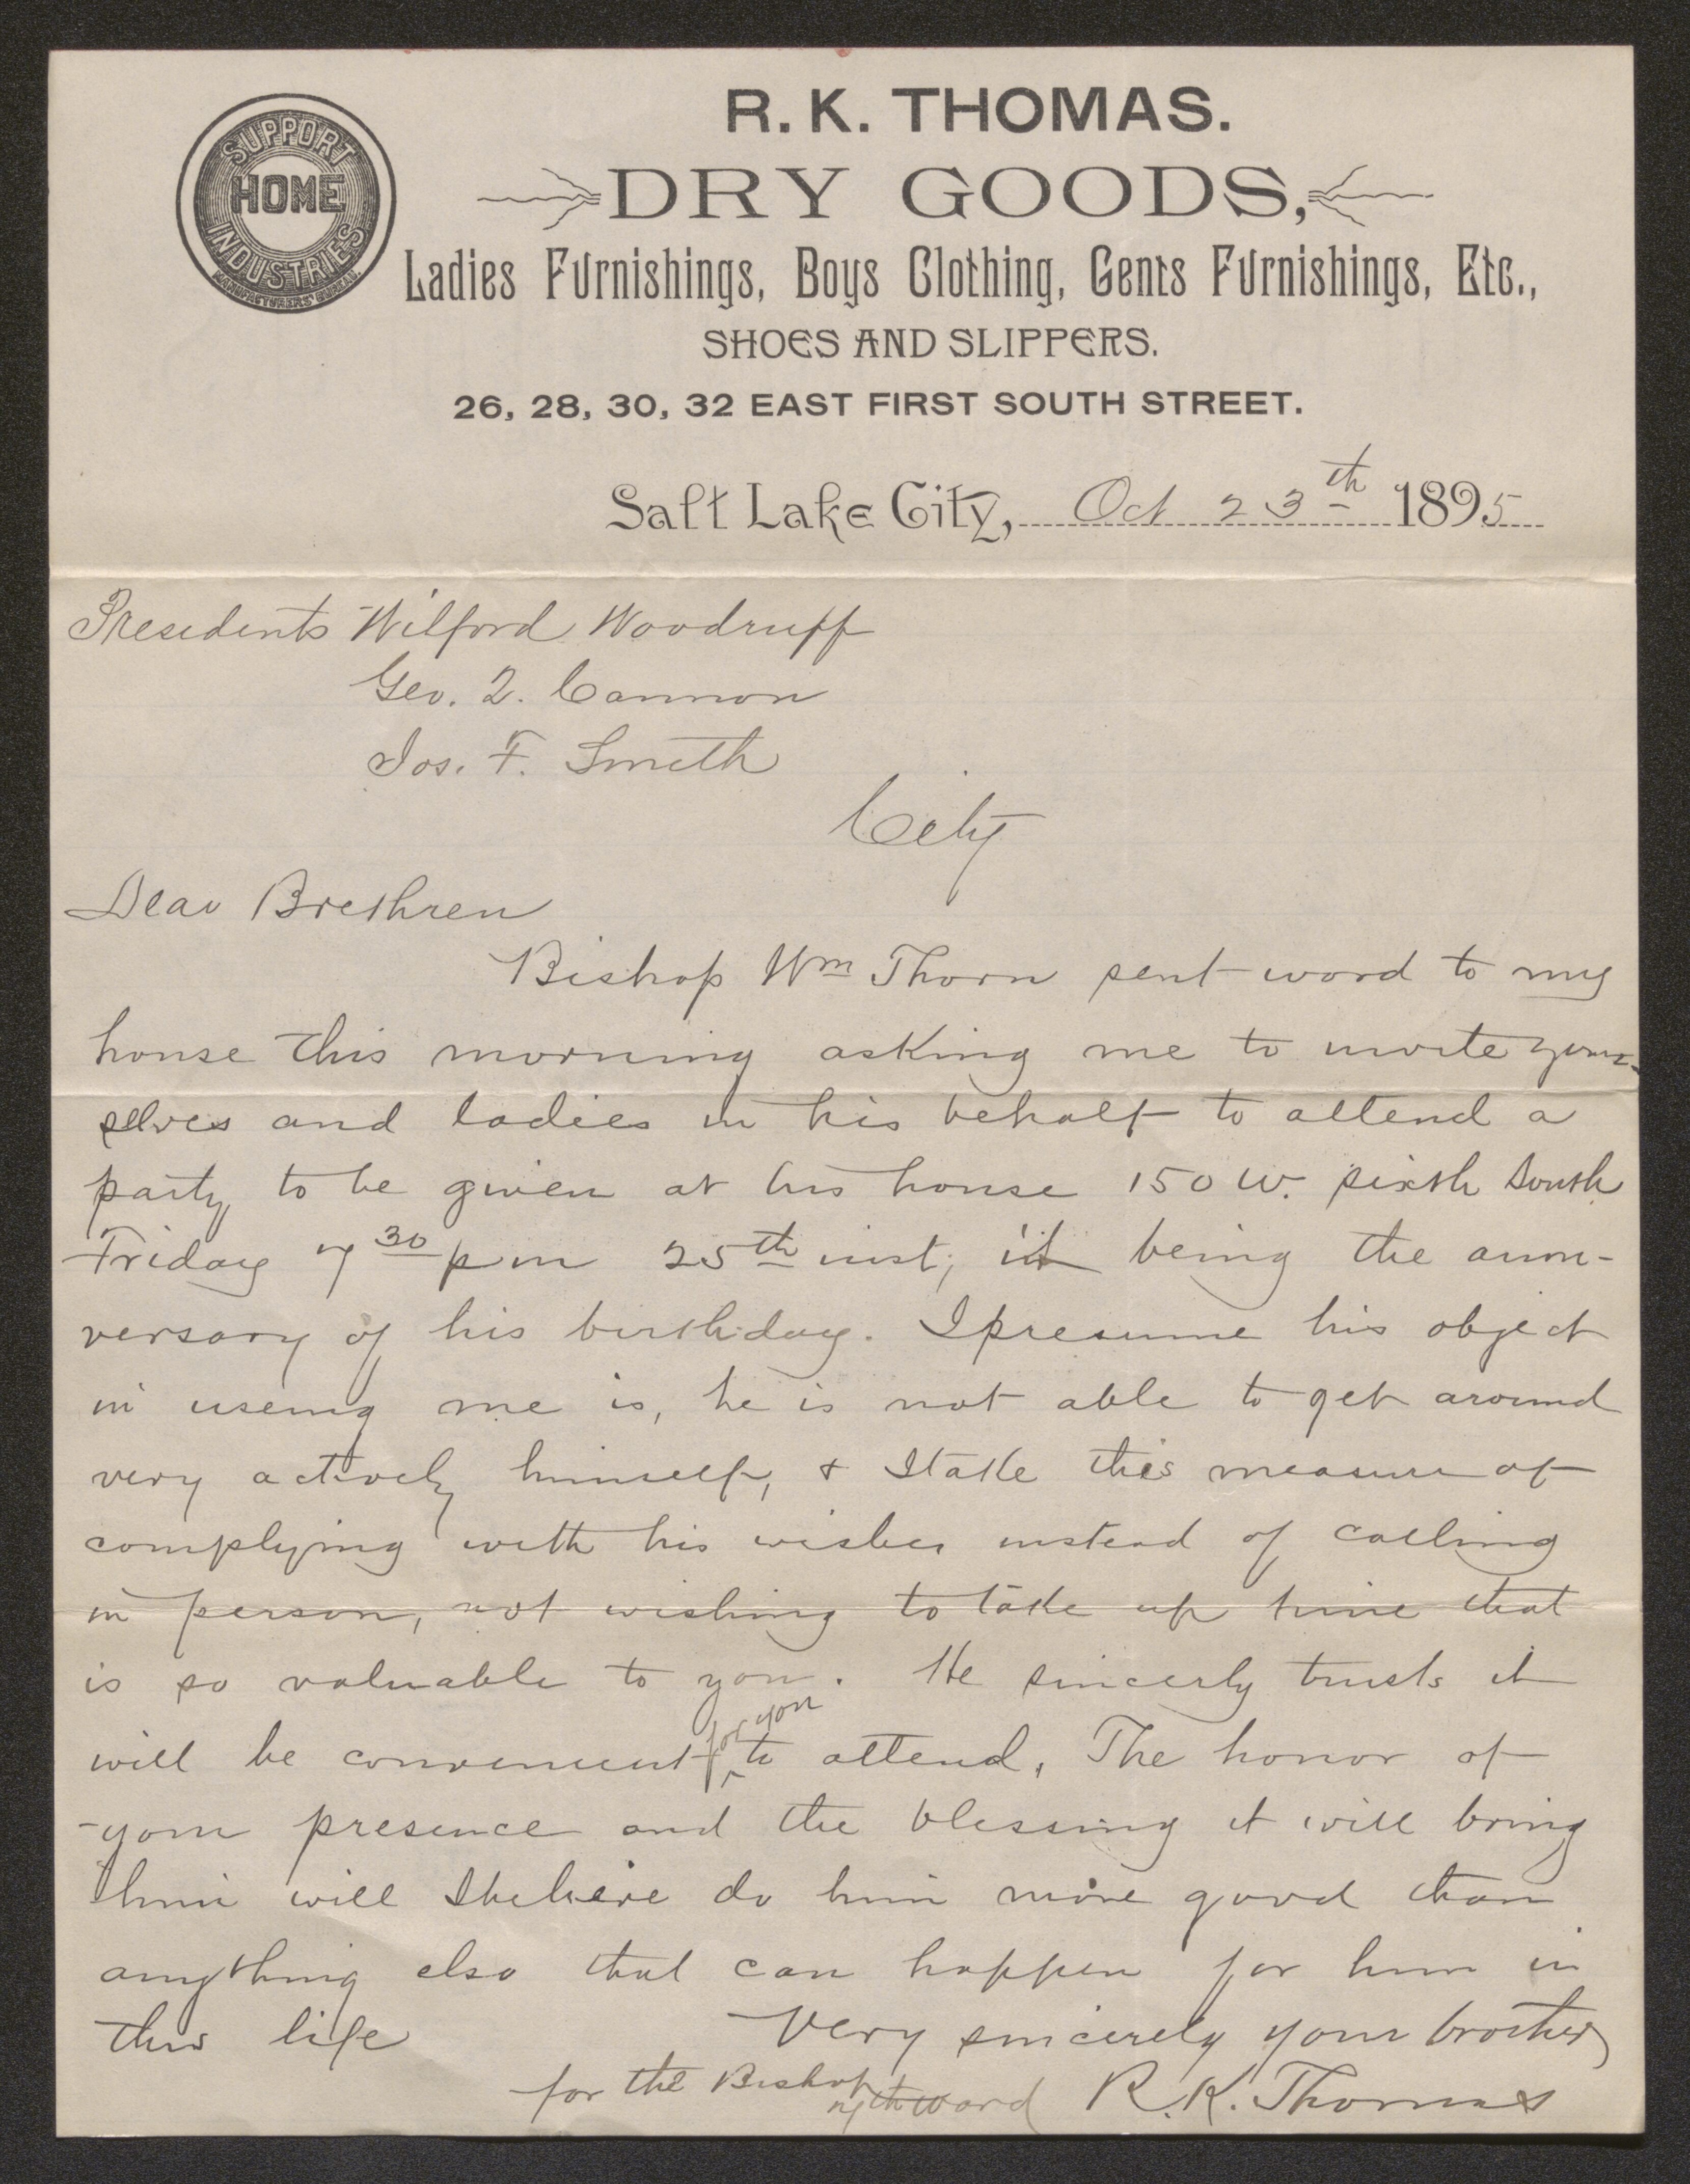 R. K. THOMAS.
SUPPORT
HOME
INDUSTRIES
MANUFACTURERS' BUREAU.
DRY GOODS,
Ladies Furnishings, Boys Clothing, Gents Furnishings, Etc.,
SHOES AND SLIPPERS.
26, 28, 30, 32 EAST FIRST SOUTH STREET.
Salt Lake City, Oct 23th 1895
Presedents Wilford Woodruff
Geo. Q. Cannon
Jos. F. Smith
City
Dear Brethren
Bishop Wm Thorn sent word to my
house this morning asking me to invite your-
selves and ladies in his behalf to attend a
party to be given at his house 150 W. sixth South
Friday 7 30 pm 25th inst; it being the anni-
versary of his birthday. I presume his object
in useing me is, he is not able to get around
very actively himself, & I take this measure of
complying with his wishes instead of calling
in person, not wishing to take up time that
is so valuable to you. He sincerly trusts it
will be convenient for you to attend. The honor of
your presence and the blessing it will bring
him will I believe do him more good than
anything else that can happen for him in
this life
Very sincerely your brother
for the Bishop 7th ward R. K. Thomas